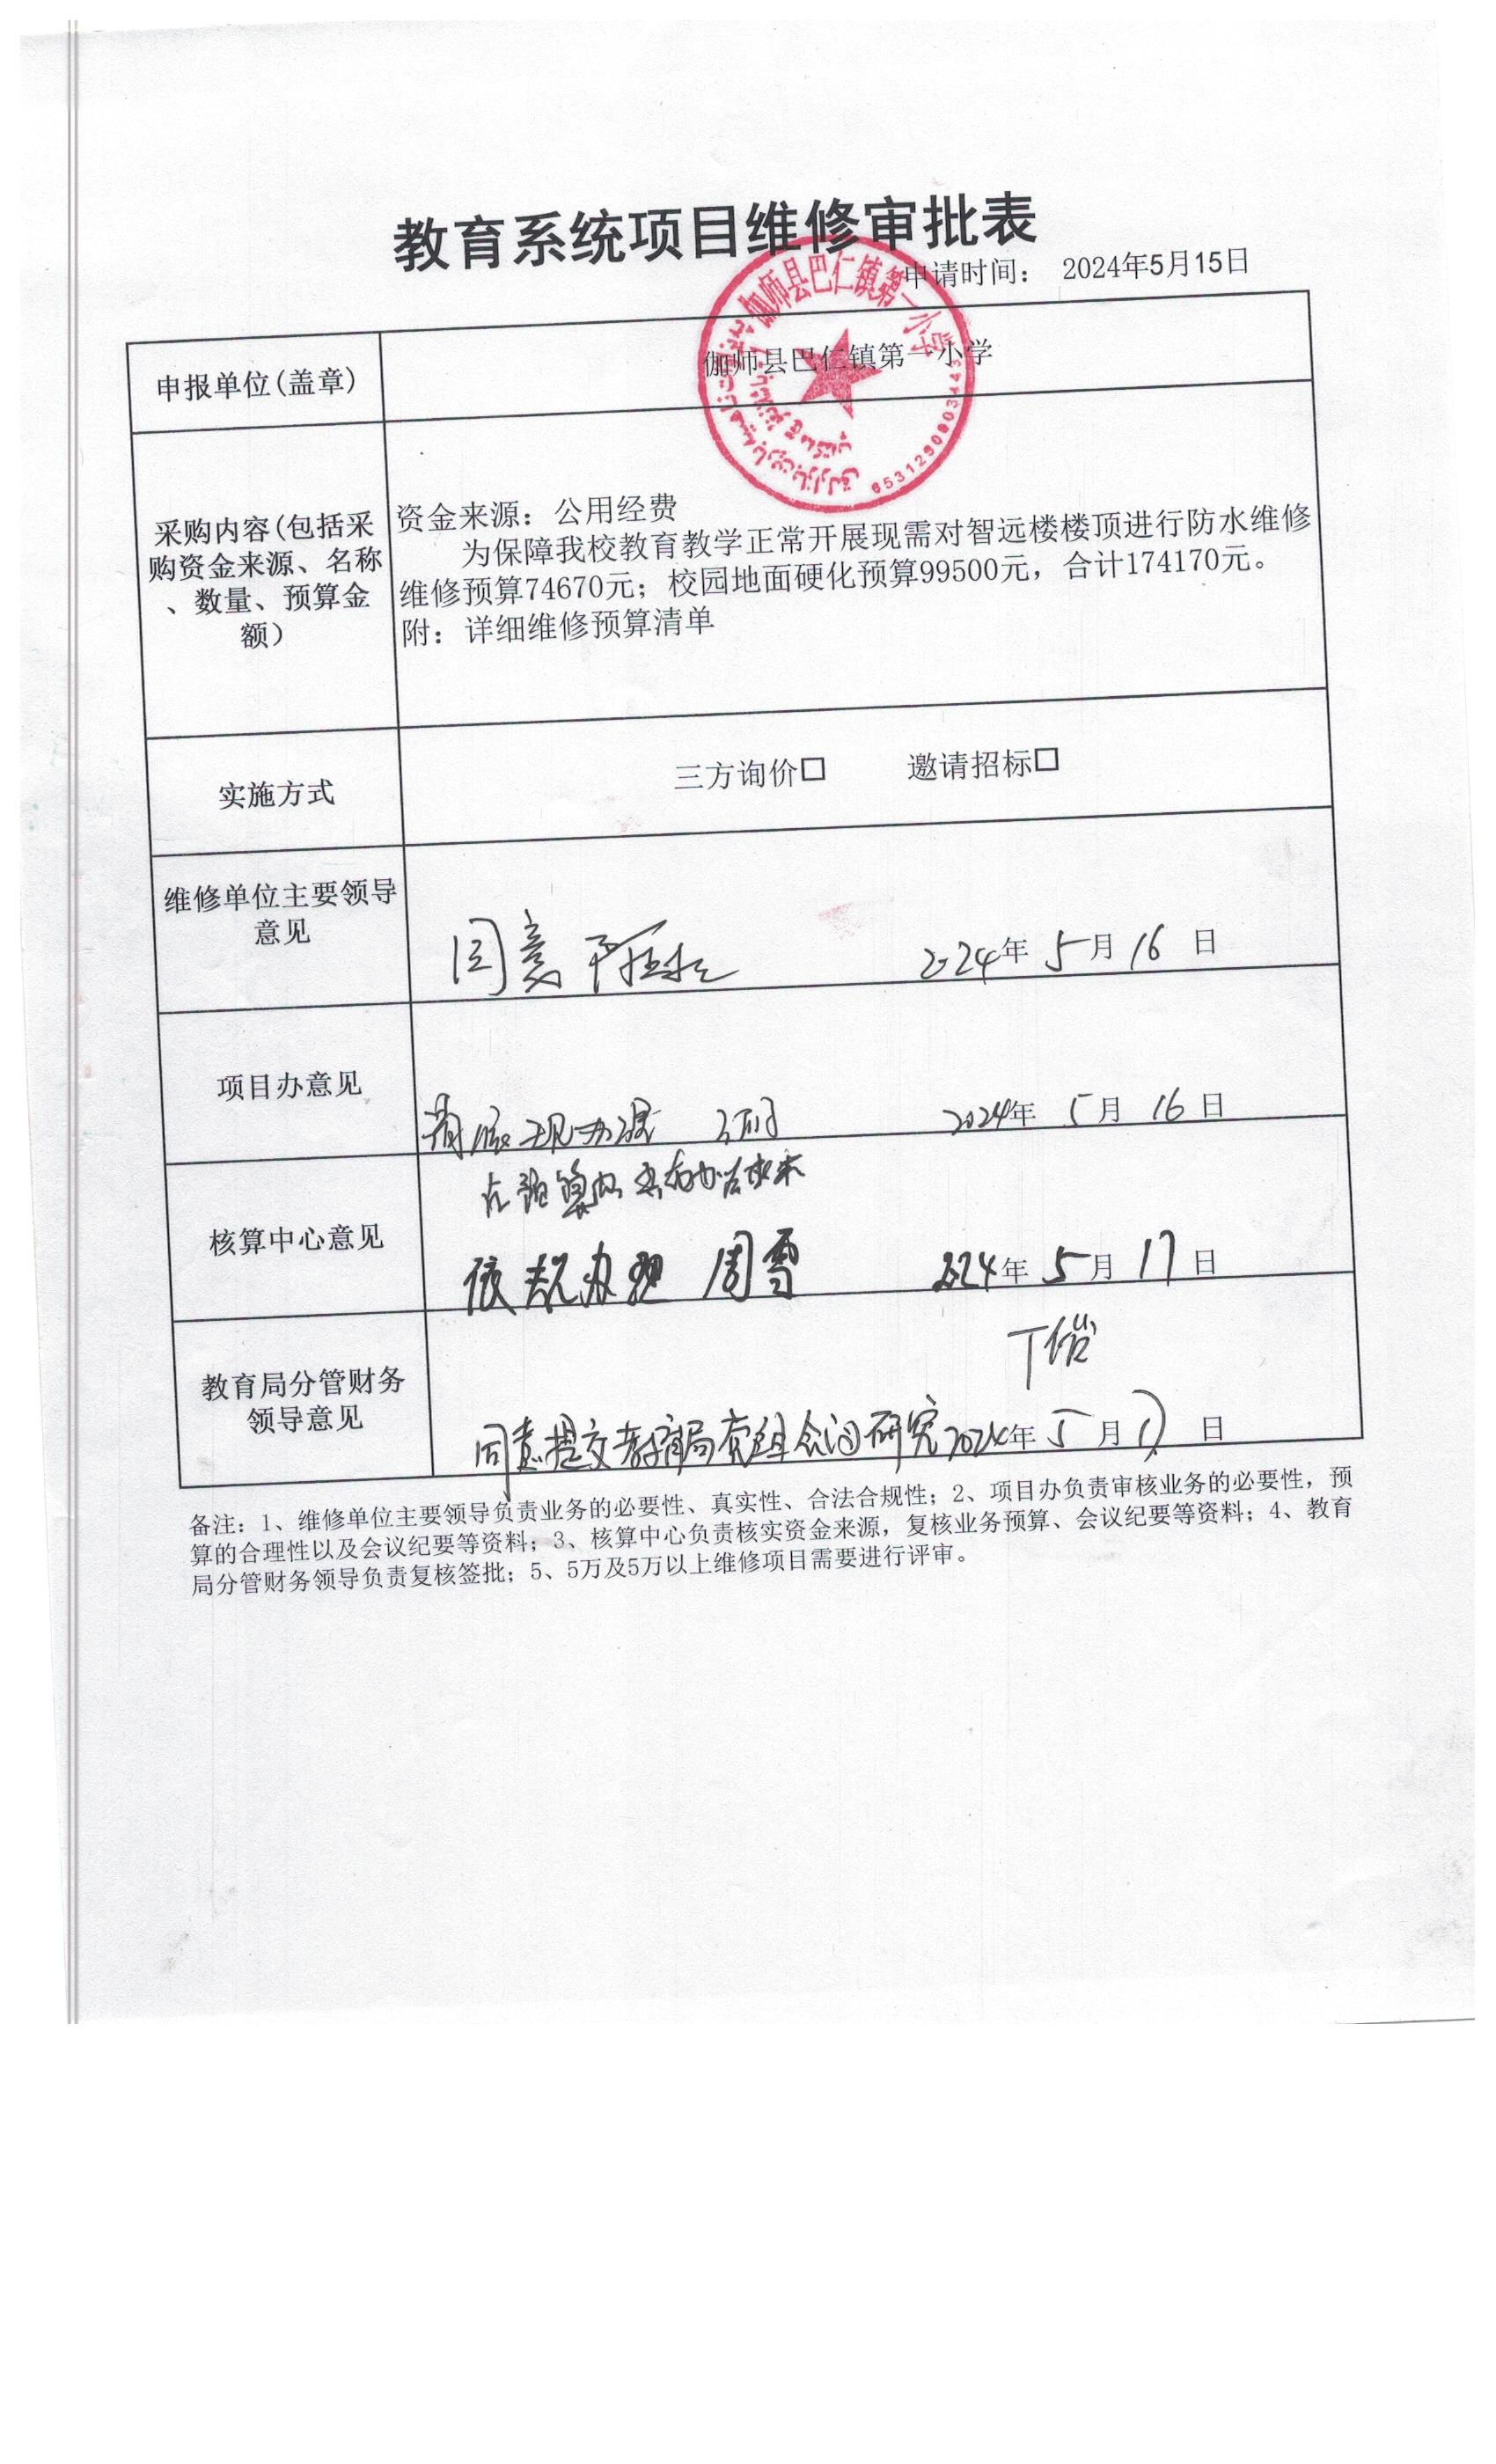 教育系统项目维修审批表
申请时间： 2024年5月15日
伽师县巴仁镇第一小学
6531290903443
申报单位(盖章)
伽师县巴仁镇第一小学
采购内容(包括采
购资金来源、名称
、数量、预算金
额)
资金来源：公用经费
为保障我校教育教学正常开展现需对智远楼楼顶进行防水维修
维修预算74670元；校园地面硬化预算99500元，合计174170元。
附：详细维修预算清单
实施方式
三方询价□ 邀请招标□
维修单位主要领导
意见
同意
2024年 5月 16 日
项目办意见
2024年 5月 16日
核算中心意见
依规办理 周雪
2024年 5月 17日
教育局分管财务
领导意见
同意提交教育局党组会议研究 2024年 5月 17 日
备注：1、维修单位主要领导负责业务的必要性、真实性、合法合规性；2、项目办负责审核业务的必要性，预
算的合理性以及会议纪要等资料；3、核算中心负责核实资金来源，复核业务预算、会议纪要等资料；4、教育
局分管财务领导负责复核签批；5、5万及5万以上维修项目需要进行评审。